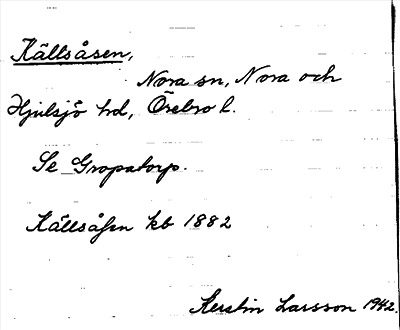 Källsåsen,
Nora sn, Nora och
Hjulsjö hd, Örebro l.
Se Gropatorp.
Källsåsen kb 1882
Kerstin Larsson 1942.